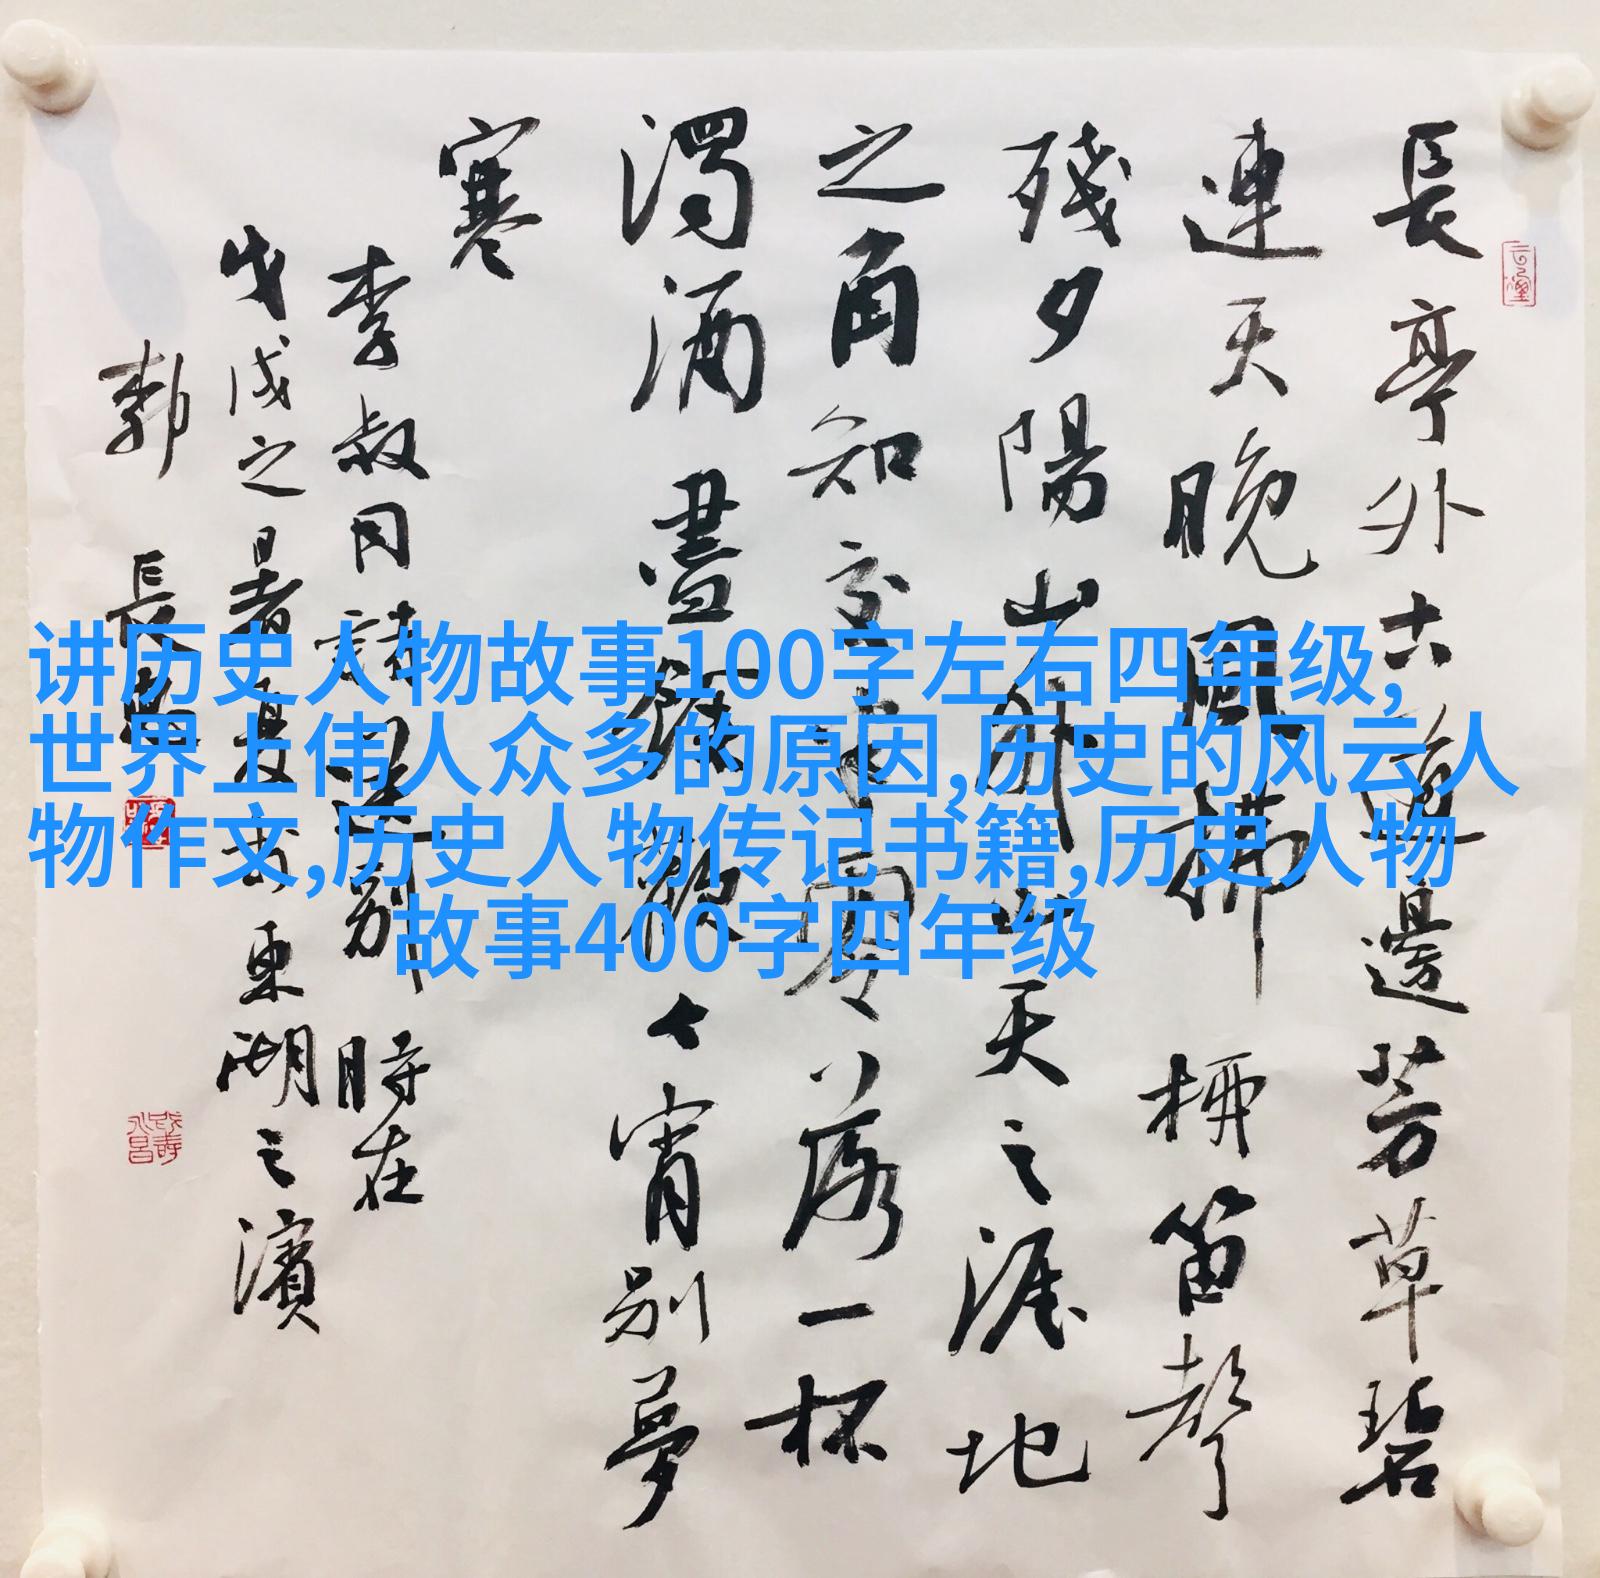 長亭外古道邊芳草碧
連天晚風拂柳笛聲
殘夕陽山外山天之涯地
之角知交半零落一杯
濁酒盡餘歡今宵別夢
寒
李叔同詩送别時在
戊戌之暑夏東湖之濱
郭長
讲历史人物故事100字左右四年级,
世界上伟人众多的原因,历史的风云人
物作文,历史人物传记书籍,历史人物
故事400字四年级